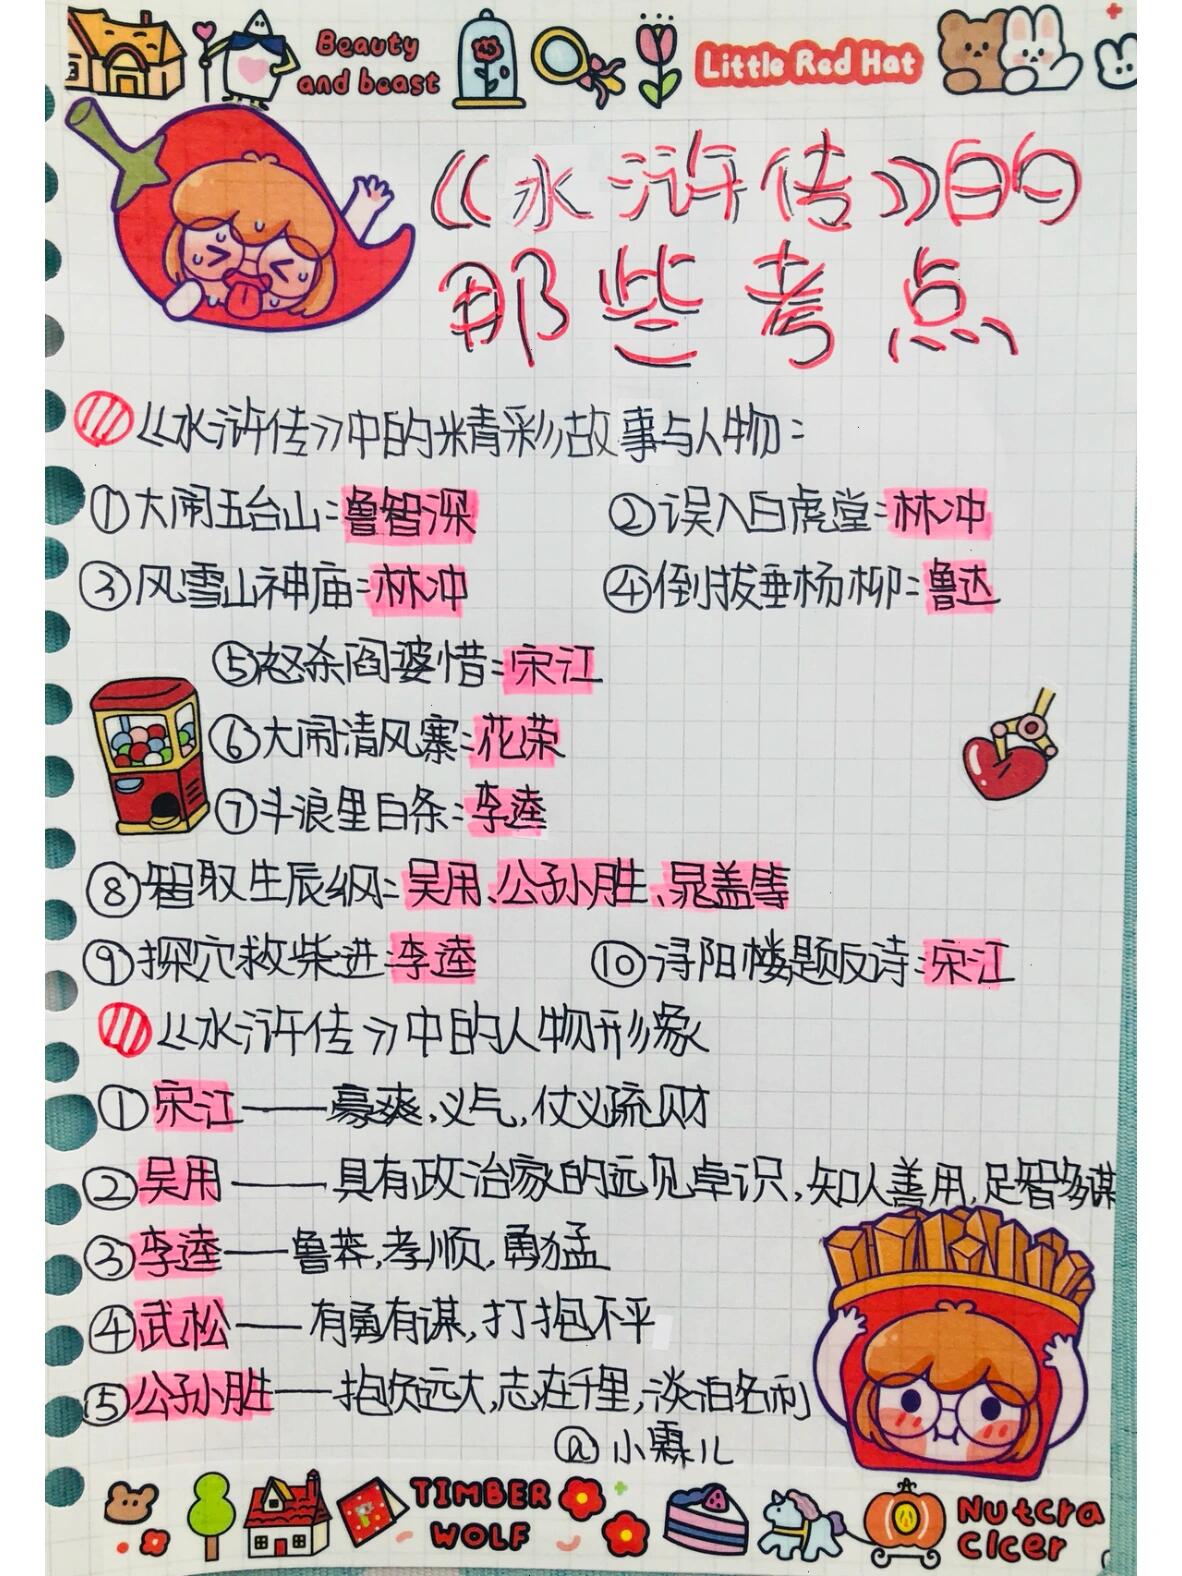 Beauty
and beast
Little Red Hat
《水浒传》的
那些考点
《水浒传》中的精彩故事与人物:
①大闹五台山:鲁智深 ②误入白虎堂:林冲
③风雪山神庙:林冲 ④倒拔垂杨柳:鲁达
⑤怒杀阎婆惜:宋江
⑥大闹清风寨:花荣
⑦斗浪里白条:李逵
⑧智取生辰纲:吴用、公孙胜、晁盖等
⑨探穴救柴进:李逵 ⑩浔阳楼题反诗:宋江
《水浒传》中的人物形象
①宋江——豪爽,义气,仗义疏财
②吴用——具有政治家的远见卓识,知人善用,足智多谋
③李逵——鲁莽,孝顺,勇猛
④武松——有勇有谋,打抱不平
⑤公孙胜——抱负远大,志在千里,淡泊名利
@小霖儿
TIMBER
WOLF
Nutcra
cicer